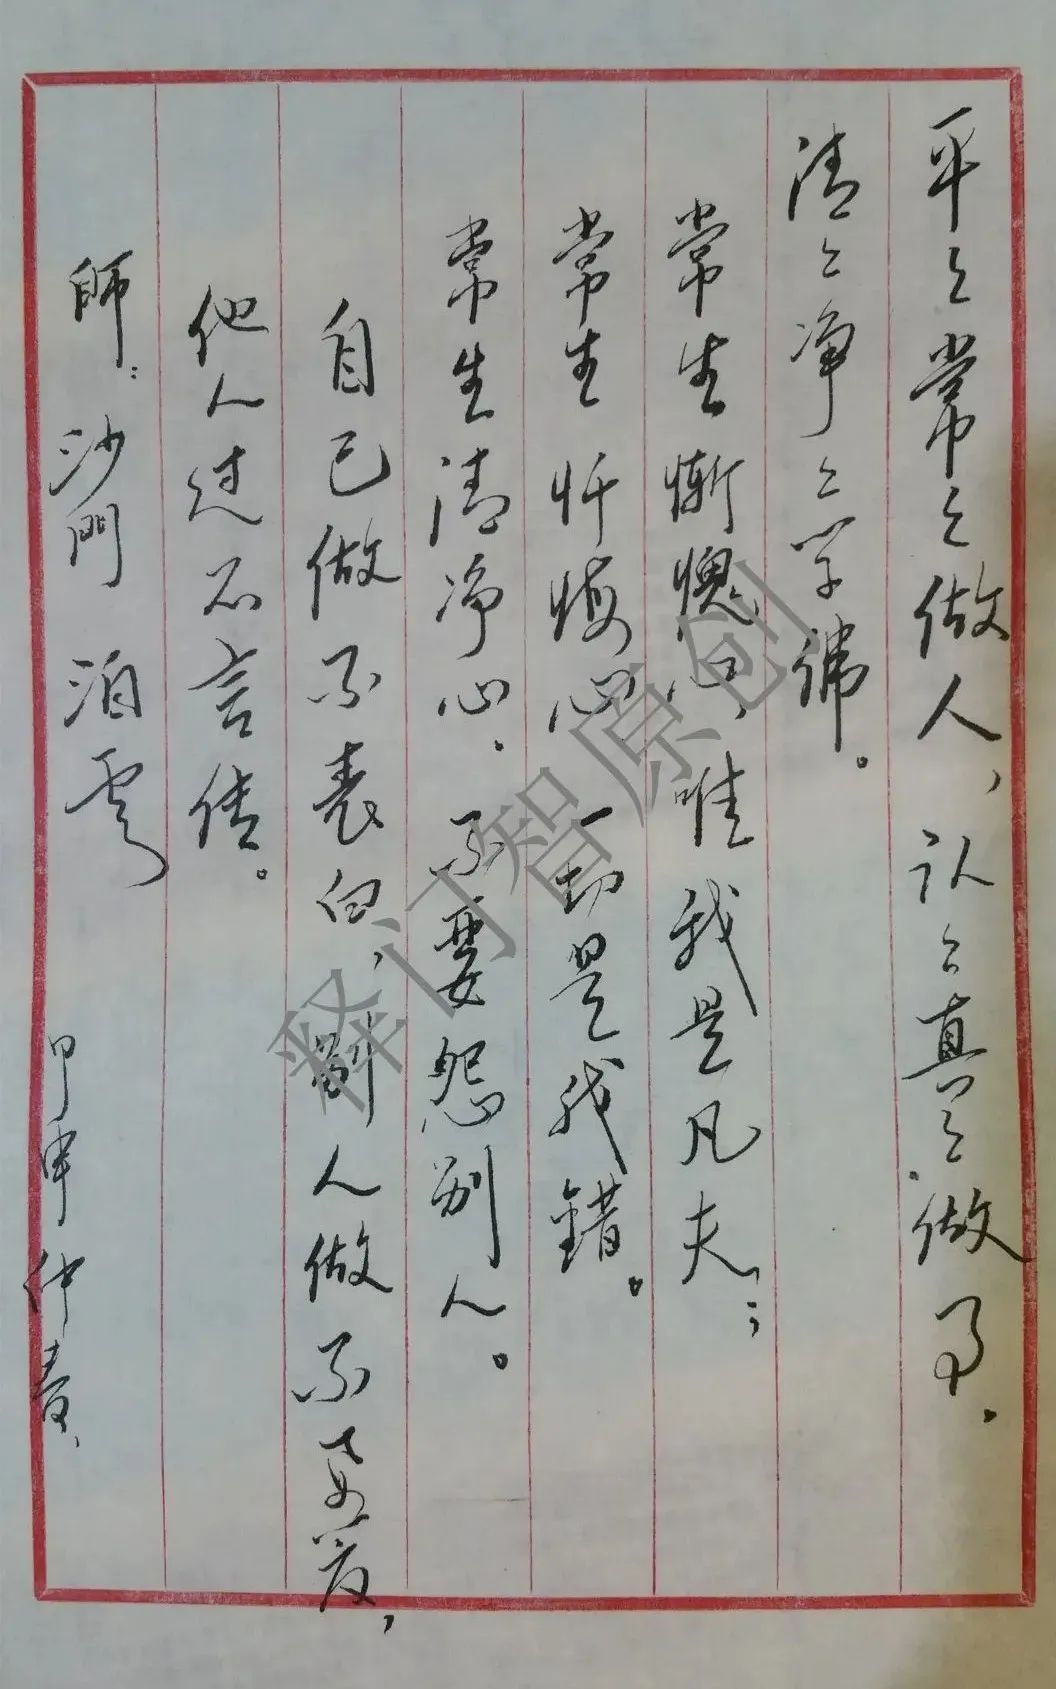 平々常々做人，认々真々做事。
清々净々学佛。
常生惭愧心，唯我是凡夫；
常生忏悔心，一切是我错。
常生清净心，不要怨别人。
自己做不表白，别人做不要发，
他人过不言传。
師：沙門 泊雲
甲申仲春、
释门智原创